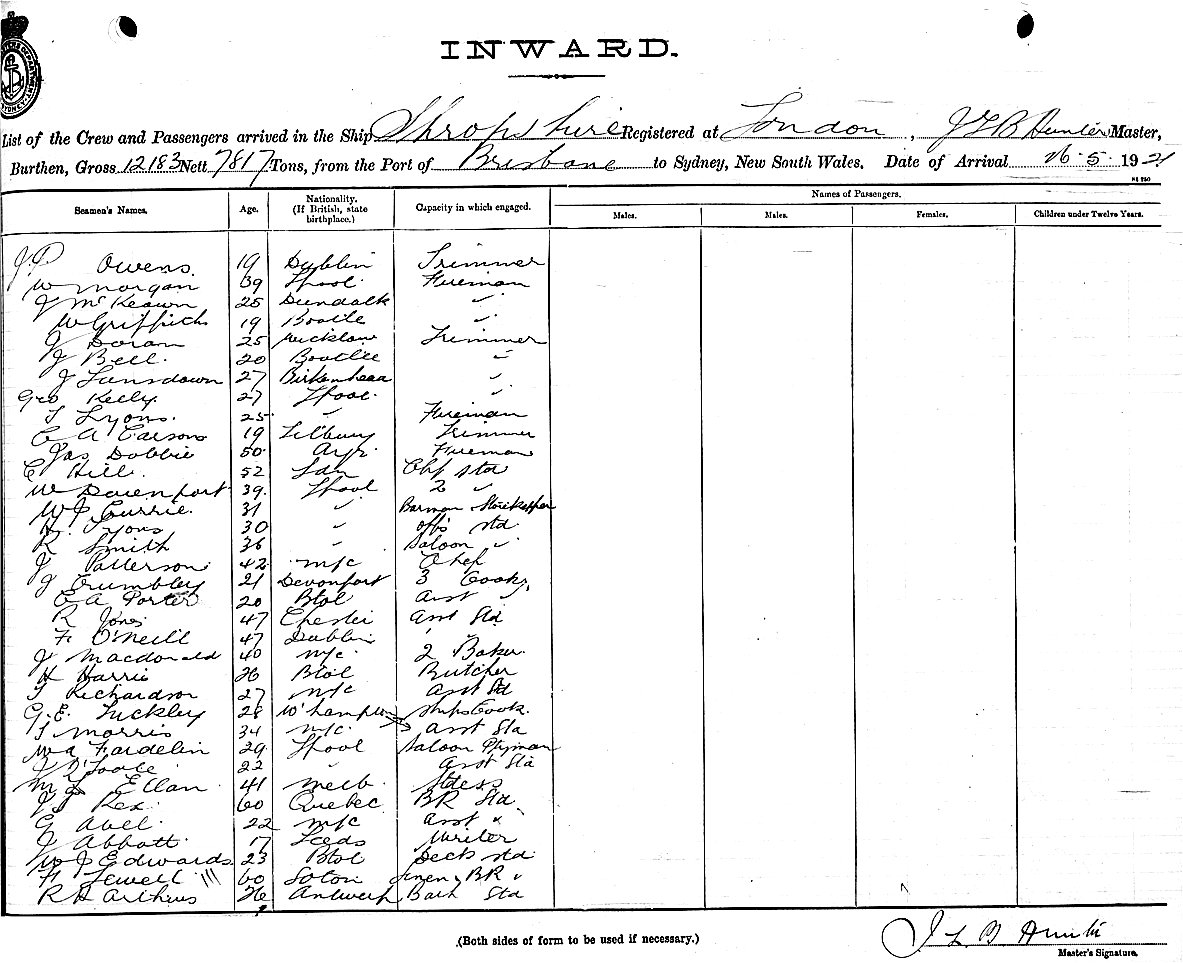 INWARD.
List of the Crew and Passengers arrived in the Ship Shropshire Registered at London, J L B Hunter Master,
Burthen, Gross 12183 Nett 7817 Tons, from the Port of Brisbane to Sydney, New South Wales, Date of Arrival 26·5·1921
Seamen's Names. Age. Nationality. (If British, state birthplace.) Capacity in which engaged. Names of Passengers.
Males. Males. Females. Children under Twelve Years.
J P Owens. 19 Dublin Trimmer
W Morgan 39 Lpool. Fireman
J McKeown 25 Dundalk "
W Griffiths 19 Bootle "
J Doran 25 Wicklow Trimmer
J Bell. 20 Bootle "
J Lansdown 27 Birkenhead "
Geo Kelly 27 Lpool. "
T Lyons. 25 " Fireman
C A Carson 19 Tilbury Trimmer
Jas Dobbie 50 Ayr. Fireman
C Hill. 52 Ldn Chf Std
W Davenport 39. Lpool 2 "
W J Currie. 31 " Barman Storekeeper
H. Lyons 30 " offs Std.
R Smith 36 " Saloon "
J Patterson 42 M/c Chef
J Crumbley 21 Devonport 3 Cook,
C A Porter 20 Btol Asst "
R Jones 47 Chester Asst Std
F. O'Neill 47 Dublin
J Macdonald 40 M/c 2 Baker
H Harris 26 Btol Butcher
T Richardson 27 M/c Asst Std
G. E. Tuckley 28 W'hampton Ships Cook.
T Morris 34 M/c. Asst Std
Wm Fardelin 29 Lpool Saloon Ptyman
J O'Toole 22 " Asst Std
M L Ellan 41 Melb. Stdess
J J Rex. 60 Quebec BR Std
G Abel. 22 M/c Asst "
J Abbott. 17 Leeds Writer
W J Edwards. 23 Btol Deck Std
F. Sewell 60 Soton Linen, BR "
R H Arthurs 26 Antwerp Bath Std
(Both sides of form to be used if necessary.)
J L B Hunter
Master's Signature.